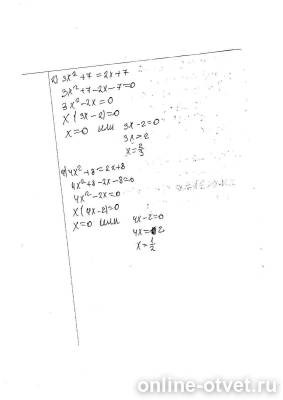 г) 3x² + 7 = 2x + 7
3x² + 7 - 2x - 7 = 0
3x² - 2x = 0
x (3x - 2) = 0
x = 0 или 3x - 2 = 0
3x = 2
x = 2/3
4x² + 8 = 2x + 8
4x² + 8 - 2x - 8 = 0
4x² - 2x = 0
x (4x - 2) = 0
x = 0 или 4x - 2 = 0
4x = 2
x = 1/2
online-otvet.ru